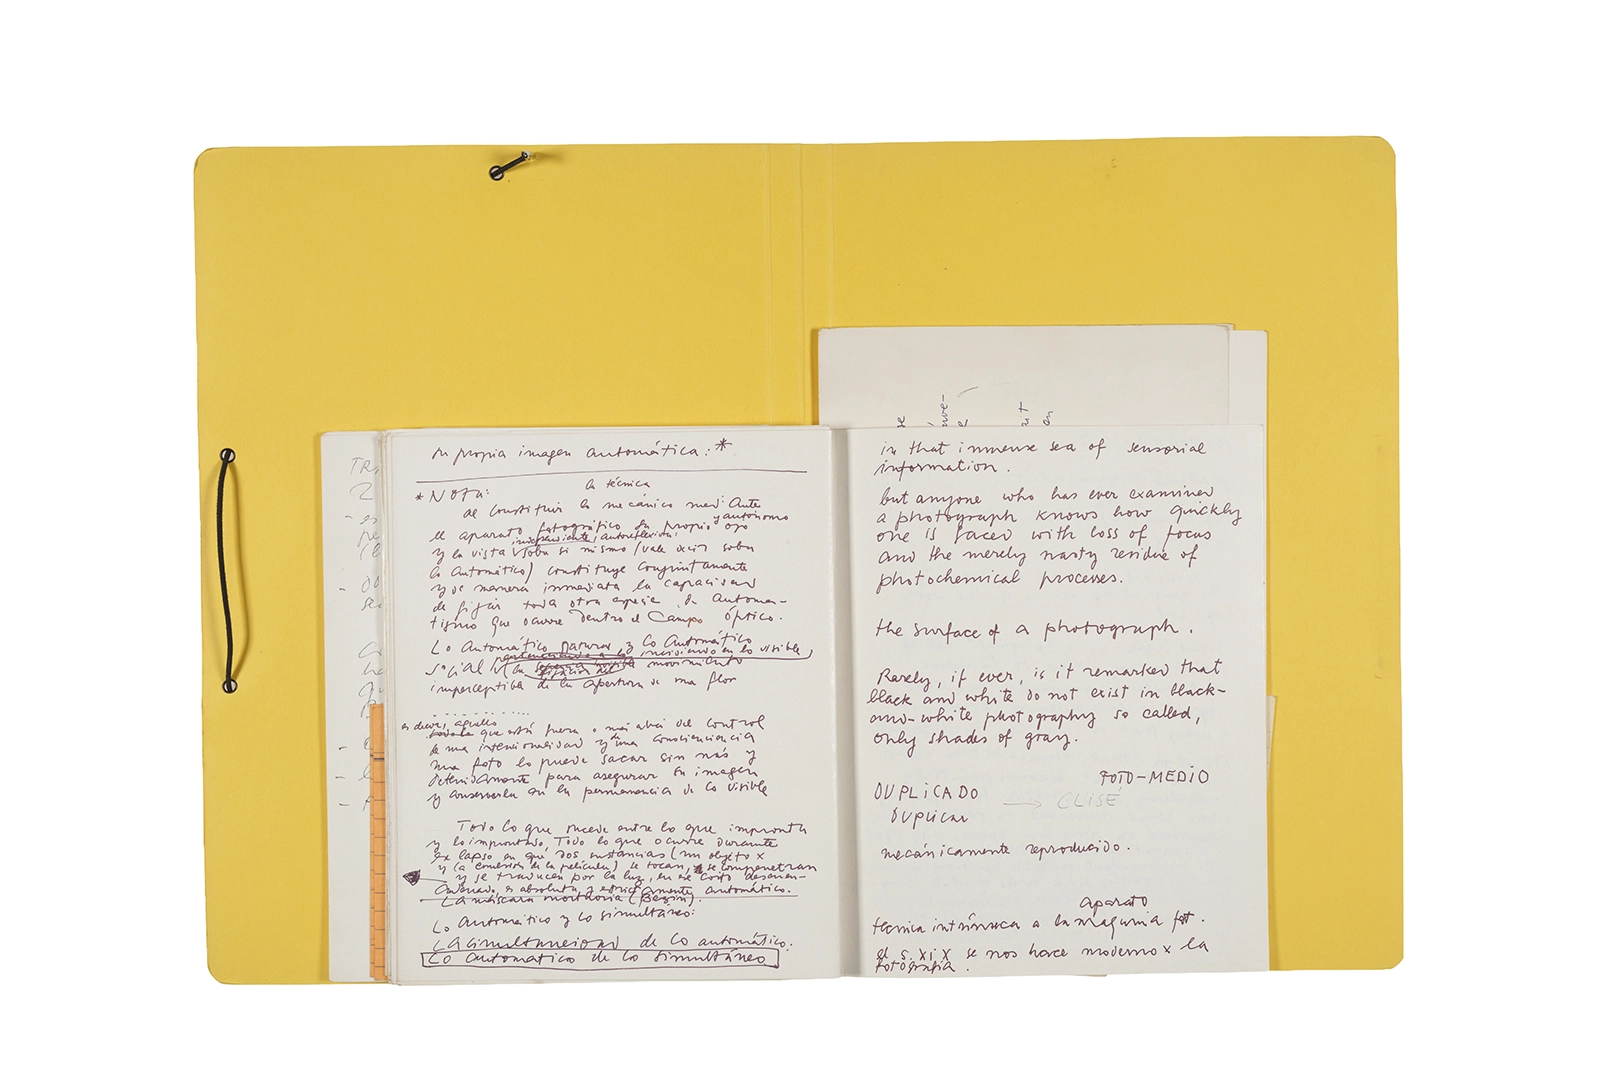 su propia imagen automática: *
* NOTA:
la técnica
al constituir lo mecánico mediante
el aparato fotográfico su propio ojo
y autónomo
independiente, autoreflexivo,
y la vista sobre si mismo (vale decir sobre
lo automático) constituye conjuntamente
y de manera inmediata la capacidad
de fijar toda otra especie de automa-
tismo que ocurre dentro el campo óptico.
Lo automático natural y lo automático
incidiendo en lo visible,
social
movimiento
imperceptible de la apertura de una flor
..............
es decir, aquello
que está fuera o más allá del control
de una intencionalidad y una consciencia
una foto lo puede sacar sin más y
detenidamente para asegurar su imagen
y conservarla en la permanencia de lo visible
Todo lo que sucede entre lo que impronta
y lo improntado, Todo lo que ocurre durante
el lapso en que dos sustancias (un objeto x
y la emulsión de la película) se tocan, se compenetran
y se traducen por la luz, en ese corto desencadenado
, es absoluta y estrictamente automático.
La máscara mortuoria (Bazin).
Lo automático y lo simultáneo:
La simultaneidad de lo automático.
Lo automatico de lo simultáneo
TR
2
in that immense sea of sensorial
information.
but anyone who has ever examined
a photograph knows how quickly
one is faced with loss of focus
and the merely nasty residue of
photochemical processes.
the surface of a photograph.
Rarely, if ever, is it remarked that
black and white do not exist in black-
and-white photography so called,
only shades of gray.
FOTO-MEDIO
DUPLICADO → CLISÉ
Duplicar
mecánicamente reproducido.
aparato
técnica intrínseca a la maquina fot.
el s. XIX se nos hace moderno x la
fotografía.